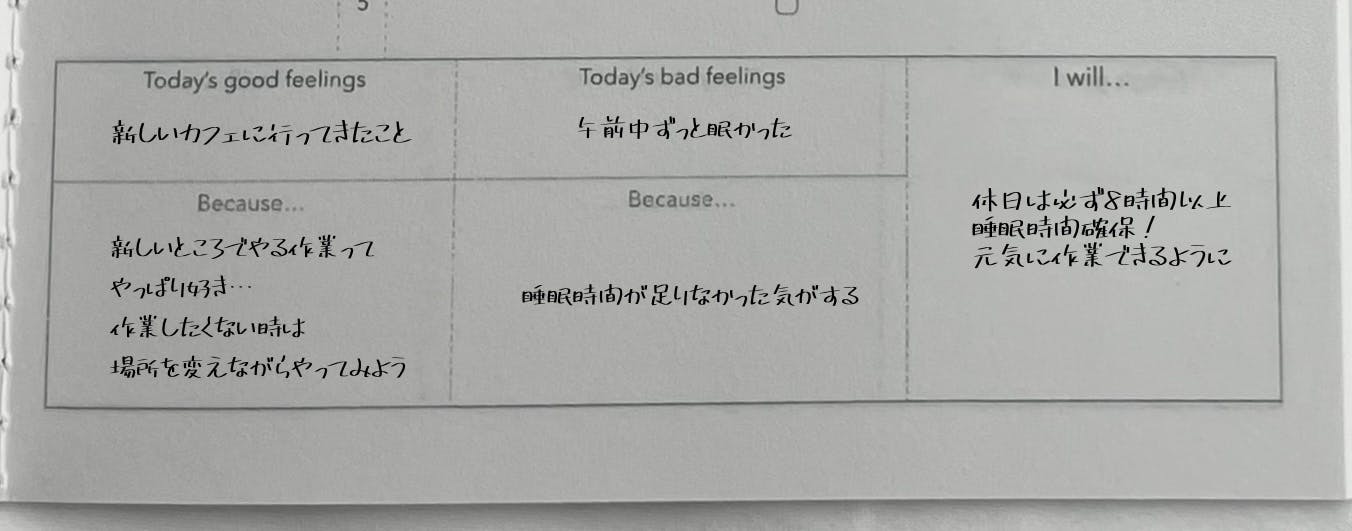 5
Today's good feelings
新しいカフェに行ってきたこと
Because...
新しいところでやる作業って
やっぱり好き…
作業したくない時は
場所を変えながらやってみよう
Today's bad feelings
午前中ずっと眠かった
Because...
睡眠時間が足りなかった気がする
I will...
休日は必ず8時間以上
睡眠時間確保！
元気に作業できるように